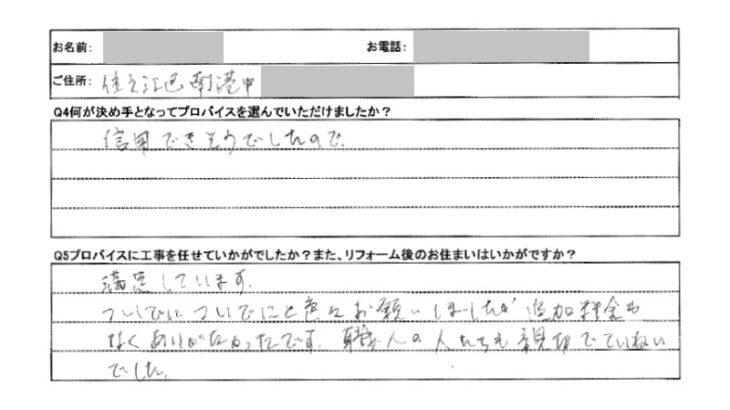 お名前:
お電話:
ご住所: 住之江区南港中
Q4何が決め手となってプロバイスを選んでいただけましたか？
信用できそうでしたので、
Q5プロバイスに工事を任せていかがでしたか？また、リフォーム後のお住まいはいかがですか？
満足しています。
ついでについでにと色々お願いしましたが追加料金も
なくありがたかったです。職人の人たちも親切でていねい
でした。